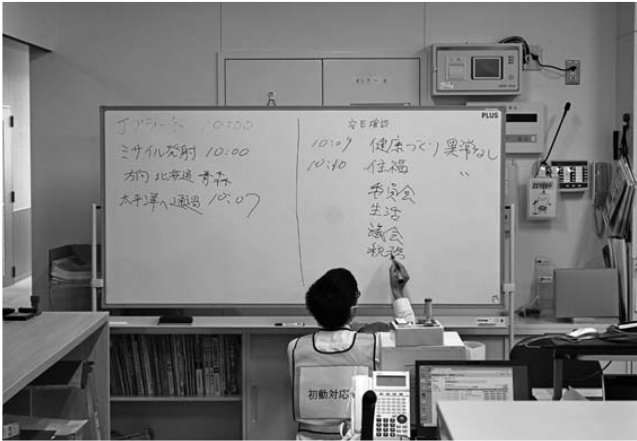 Jアラート 10:00
ミサイル発射 10:00
方向 北海道 青森
太平洋へ通過 10:07
安否確認
10:09 健康づくり 異常なし
10:10 住福 〃
委員会
生活
議会
税務
PLUS
初動対応